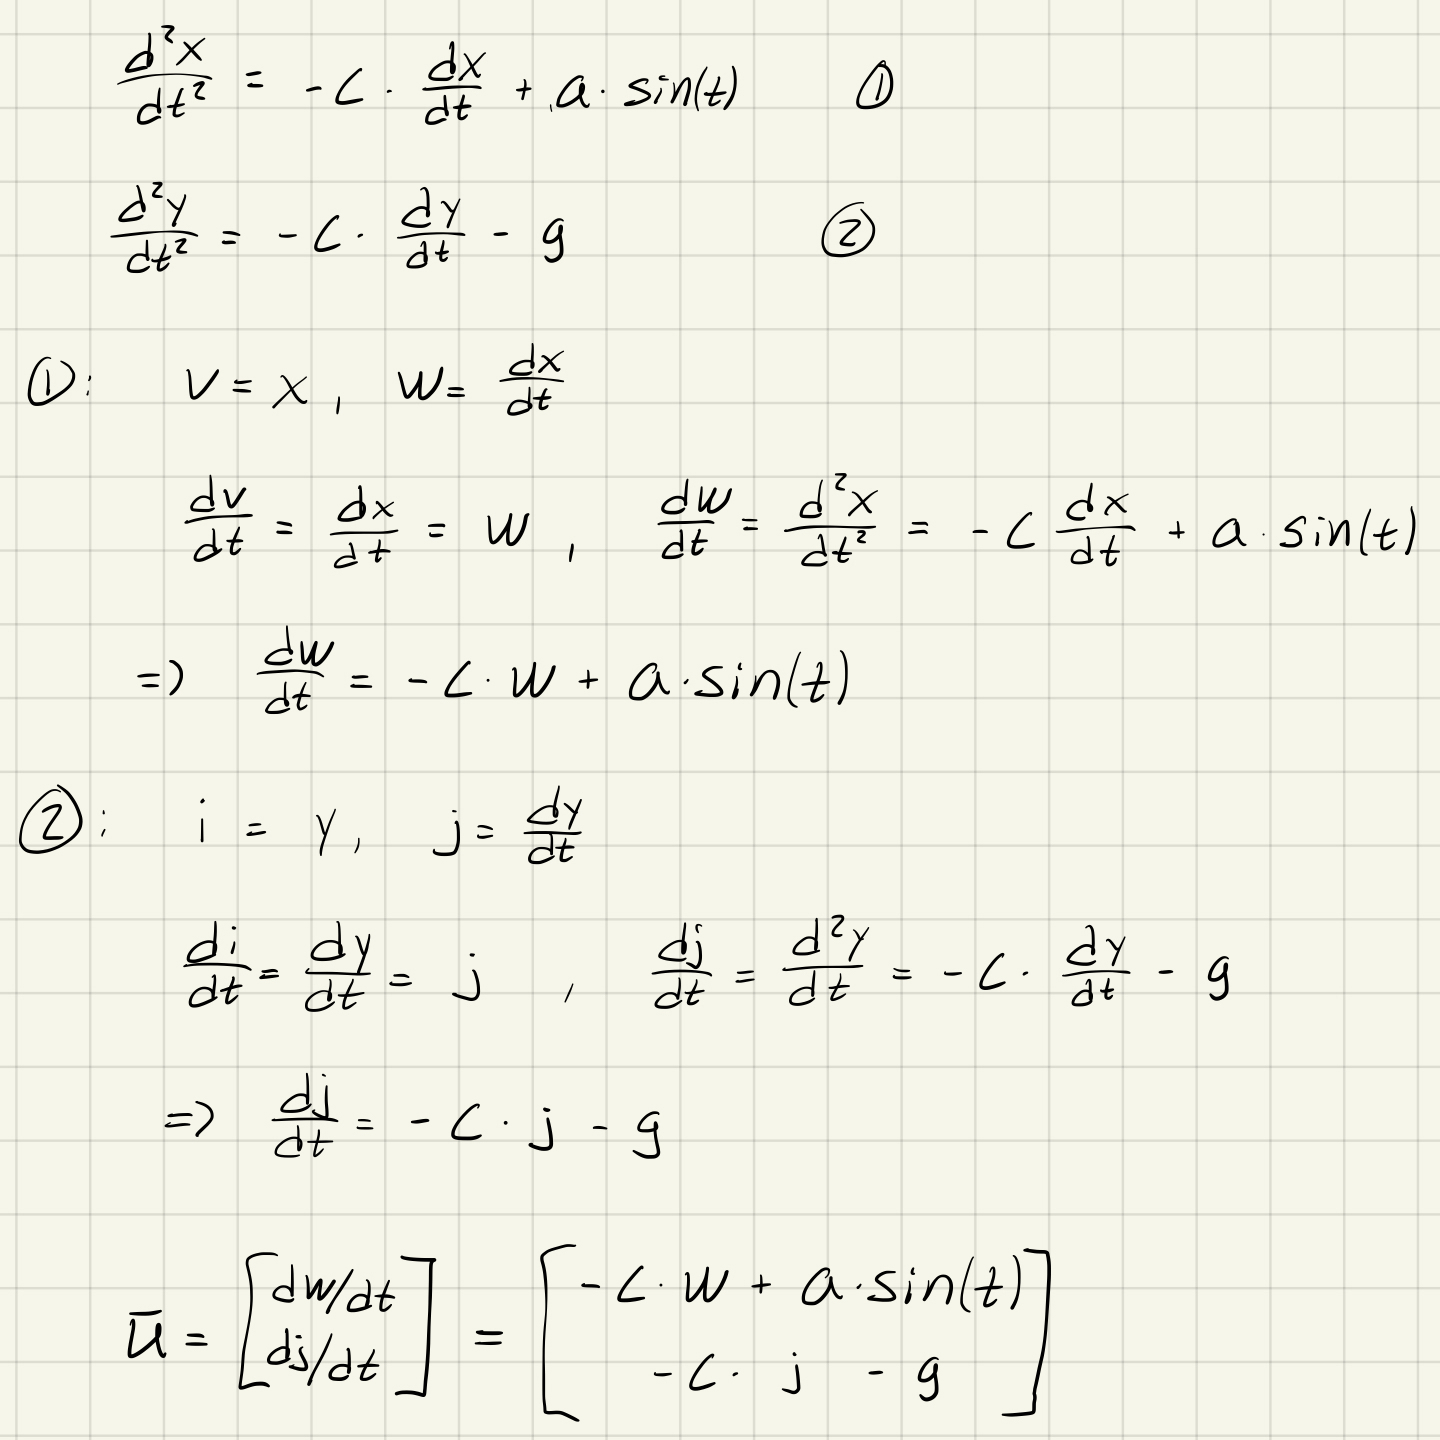 d²x/dt² = -c · dx/dt + a · sin(t) ①
d²y/dt² = -c · dy/dt - g ②
①: v = x, w = dx/dt
dv/dt = dx/dt = w, dw/dt = d²x/dt² = -c dx/dt + a · sin(t)
=> dw/dt = -c · w + a · sin(t)
②: i = y, j = dy/dt
di/dt = dy/dt = j, dj/dt = d²y/dt = -c · dy/dt - g
=> dj/dt = -c · j - g
ū = [dw/dt dj/dt] = [-c · w + a · sin(t) -c · j - g]